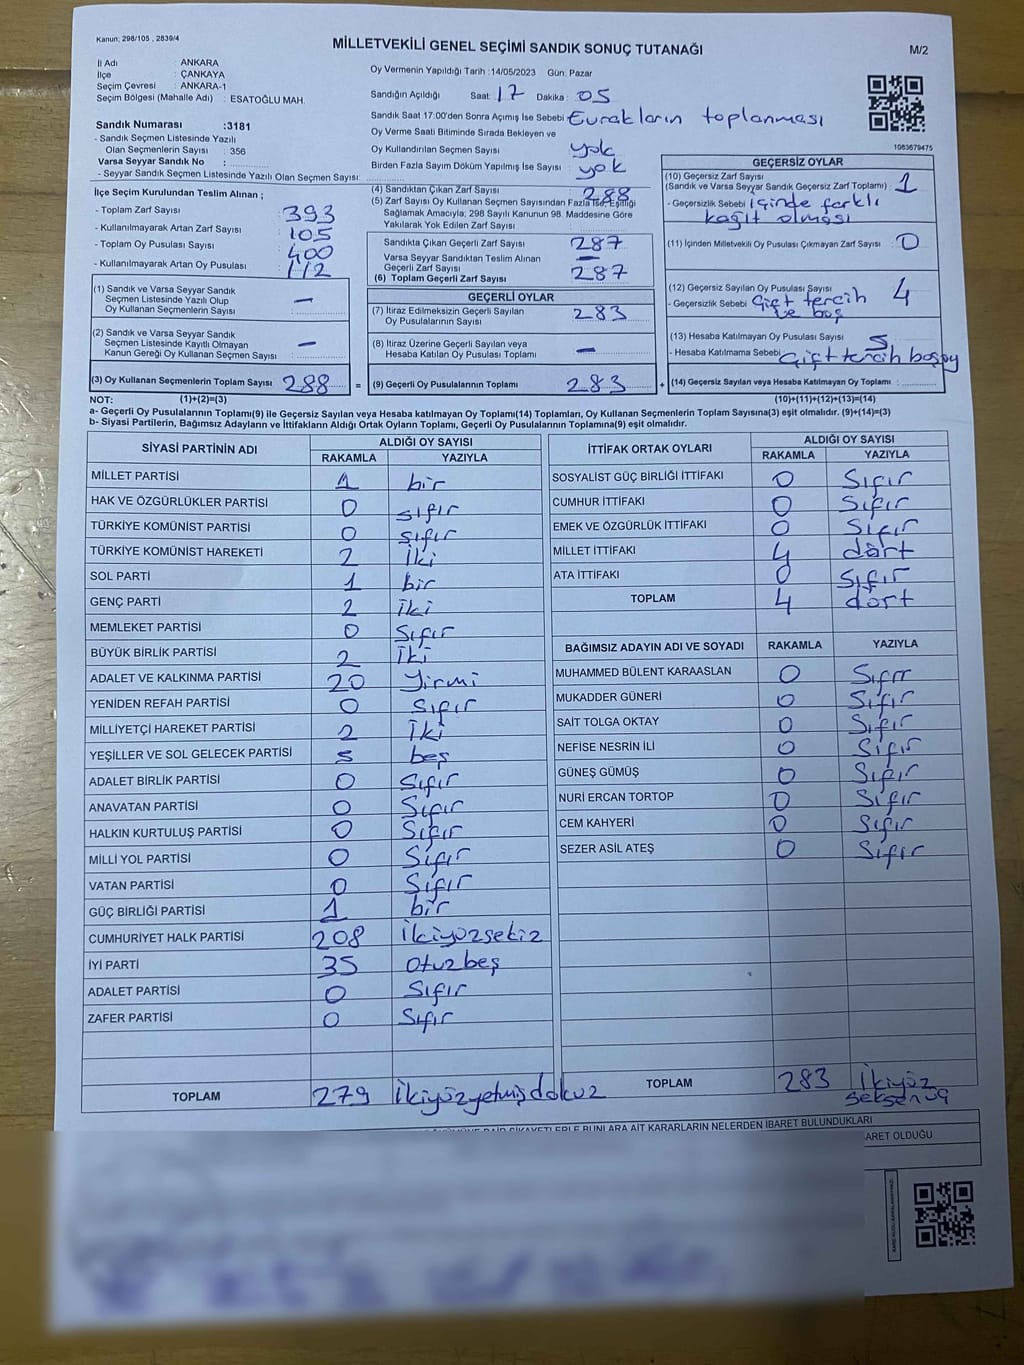 Kanun: 298/105 , 2839/4
MİLLETVEKİLİ GENEL SEÇİMİ SANDIK SONUÇ TUTANAĞI
M/2
İl Adı : ANKARA
İlçe : ÇANKAYA
Seçim Çevresi : ANKARA-1
Seçim Bölgesi (Mahalle Adı) : ESATOĞLU MAH.
Oy Vermenin Yapıldığı Tarih :14/05/2023 Gün: Pazar
Sandığın Açıldığı Saat: 17 Dakika: 05
Sandık Saat 17:00'den Sonra Açımış İse Sebebi: Evrakların toplanması
Oy Verme Saati Bitiminde Sırada Bekleyen ve
Oy Kullandırılan Seçmen Sayısı yok
Birden Fazla Sayım Döküm Yapılmış İse Sayısı : yok
1083679475
Sandık Numarası :3181
- Sandık Seçmen Listesinde Yazılı
Olan Seçmenlerin Sayısı : 356
Varsa Seyyar Sandık No :
- Seyyar Sandık Seçmen Listesinde Yazılı Olan Seçmen Sayısı:
İlçe Seçim Kurulundan Teslim Alınan ;
- Toplam Zarf Sayısı : 393
- Kullanılmayarak Artan Zarf Sayısı : 105
- Toplam Oy Pusulası Sayısı : 400
- Kullanılmayarak Artan Oy Pusulası : 112
(1) Sandık ve Varsa Seyyar Sandık
Seçmen Listesinde Yazılı Olup
Oy Kullanan Seçmenlerin Sayısı : —
(2) Sandık ve Varsa Seyyar Sandık
Seçmen Listesinde Kayıtlı Olmayan
Kanun Gereği Oy Kullanan Seçmen Sayısı : —
(3) Oy Kullanan Seçmenlerin Toplam Sayısı : 288 =
(4) Sandıktan Çıkan Zarf Sayısı : 288
(5) Zarf Sayısı Oy Kullanan Seçmen Sayısından Fazla ise, Eşitliği
Sağlamak Amacıyla; 298 Sayılı Kanunun 98. Maddesine Göre
Yakılarak Yok Edilen Zarf Sayısı :
Sandıkta Çıkan Geçerli Zarf Sayısı : 287
Varsa Seyyar Sandıktan Teslim Alınan
Geçerli Zarf Sayısı : —
(6) Toplam Geçerli Zarf Sayısı : 287
GEÇERLİ OYLAR
(7) İtiraz Edilmeksizin Geçerli Sayılan
Oy Pusulalarının Sayısı : 283
(8) İtiraz Üzerine Geçerli Sayılan veya
Hesaba Katılan Oy Pusulası Toplamı : —
(9) Geçerli Oy Pusulalarının Toplamı : 283 +
GEÇERSİZ OYLAR
(10) Geçersiz Zarf Sayısı
(Sandık ve Varsa Seyyar Sandık Geçersiz Zarf Toplamı) : 1
- Geçersizlik Sebebi : içinde farklı
kağıt olması
(11) İçinden Milletvekili Oy Pusulası Çıkmayan Zarf Sayısı : 0
(12) Geçersiz Sayılan Oy Pusulası Sayısı 4
- Geçersizlik Sebebi : Çift tercih
ve boş
(13) Hesaba Katılmayan Oy Pusulası Sayısı : 5
- Hesaba Katılmama Sebebi : Çift tercih boşoy
(14) Geçersiz Sayılan veya Hesaba Katılmayan Oy Toplamı :
NOT: (1)+(2)=(3) (10)+(11)+(12)+(13)=(14)
a- Geçerli Oy Pusulalarının Toplamı(9) ile Geçersiz Sayılan veya Hesaba katılmayan Oy Toplamı(14) Toplamları, Oy Kullanan Seçmenlerin Toplam Sayısına(3) eşit olmalıdır. (9)+(14)=(3)
b- Siyasi Partilerin, Bağımsız Adayların ve İttifakların Aldığı Ortak Oyların Toplamı, Geçerli Oy Pusulalarının Toplamına(9) eşit olmalıdır.
SİYASİ PARTİNİN ADI ALDIĞI OY SAYISI
RAKAMLA YAZIYLA
MİLLET PARTİSİ 1 bir
HAK VE ÖZGÜRLÜKLER PARTİSİ 0 sıfır
TÜRKİYE KOMÜNİST PARTİSİ 0 sıfır
TÜRKİYE KOMÜNİST HAREKETİ 2 İki
SOL PARTİ 1 bir
GENÇ PARTİ 2 iki
MEMLEKET PARTİSİ 0 Sıfır
BÜYÜK BİRLİK PARTİSİ 2 İki
ADALET VE KALKINMA PARTİSİ 20 Yirmi
YENİDEN REFAH PARTİSİ 0 Sıfır
MİLLİYETÇİ HAREKET PARTİSİ 2 İki
YEŞİLLER VE SOL GELECEK PARTİSİ 5 beş
ADALET BİRLİK PARTİSİ 0 Sıfır
ANAVATAN PARTİSİ 0 Sıfır
HALKIN KURTULUŞ PARTİSİ 0 Sıfır
MİLLİ YOL PARTİSİ 0 Sıfır
VATAN PARTİSİ 0 Sıfır
GÜÇ BİRLİĞİ PARTİSİ 1 bir
CUMHURİYET HALK PARTİSİ 208 İkiyüzsekiz
İYİ PARTİ 35 Otuzbeş
ADALET PARTİSİ 0 Sıfır
ZAFER PARTİSİ 0 Sıfır
TOPLAM 279 İkiyüzyetmişdokuz
İTTİFAK ORTAK OYLARI ALDIĞI OY SAYISI
RAKAMLA YAZIYLA
SOSYALİST GÜÇ BİRLİĞİ İTTİFAKI 0 Sıfır
CUMHUR İTTİFAKI 0 Sıfır
EMEK VE ÖZGÜRLÜK İTTİFAKI 0 Sıfır
MİLLET İTTİFAKI 4 dört
ATA İTTİFAKI 0 Sıfır
TOPLAM 4 dört
BAĞIMSIZ ADAYIN ADI VE SOYADI RAKAMLA YAZIYLA
MUHAMMED BÜLENT KARAASLAN 0 Sıfır
MUKADDER GÜNERİ 0 Sıfır
SAİT TOLGA OKTAY 0 Sıfır
NEFİSE NESRİN İLİ 0 Sıfır
GÜNEŞ GÜMÜŞ 0 Sıfır
NURİ ERCAN TORTOP 0 Sıfır
CEM KAHYERİ 0 Sıfır
SEZER ASİL ATEŞ 0 Sıfır
TOPLAM 283 İkiyüz
seksenüç
KARARLARIN NELERDEN İBARET BULUNDUKLARI
OLDUĞU